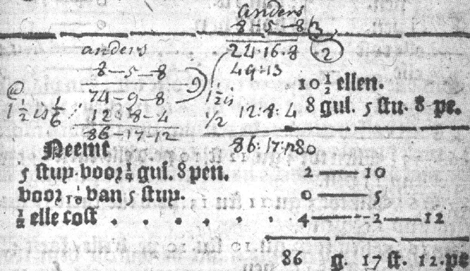 anders
8-5-8 3
anders 24:16:8 2
8-5-8 9 49:13
74-9-8 10 1/2 ellen.
1 1/2 is 1/6 12:8-4 1/2 12:8:4 8 gul. 5 stu. 8 pe.
86-17-12 86:17:
Neemt
5 stup. voor 1/4 gul. 8 pen. 2 — 10
voor 1/10 van 5 stup. 0 — 5
1/2 elle cost . . . . 4 — 2 — 12
86 g. 17 st. 12. pe